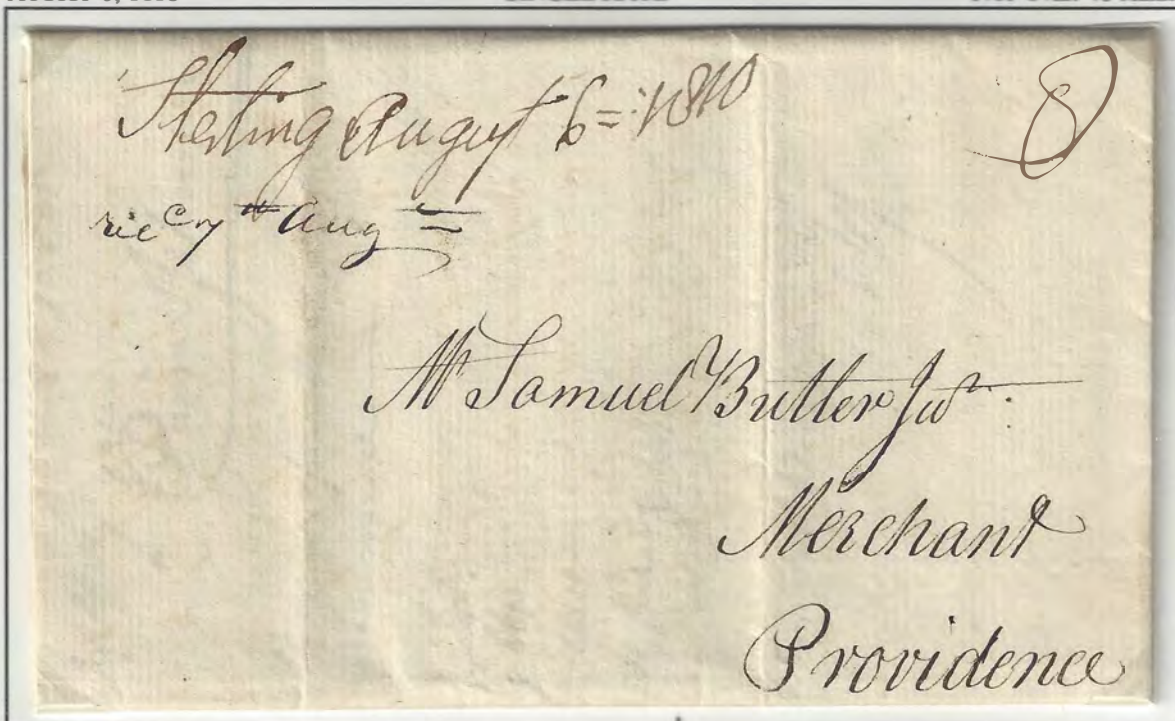 Sterling August 6=:1810
8
recᵈ 7ᵗʰ Augᵗ
Mʳ Samuel Butler Juʳ.
Merchant
Providence